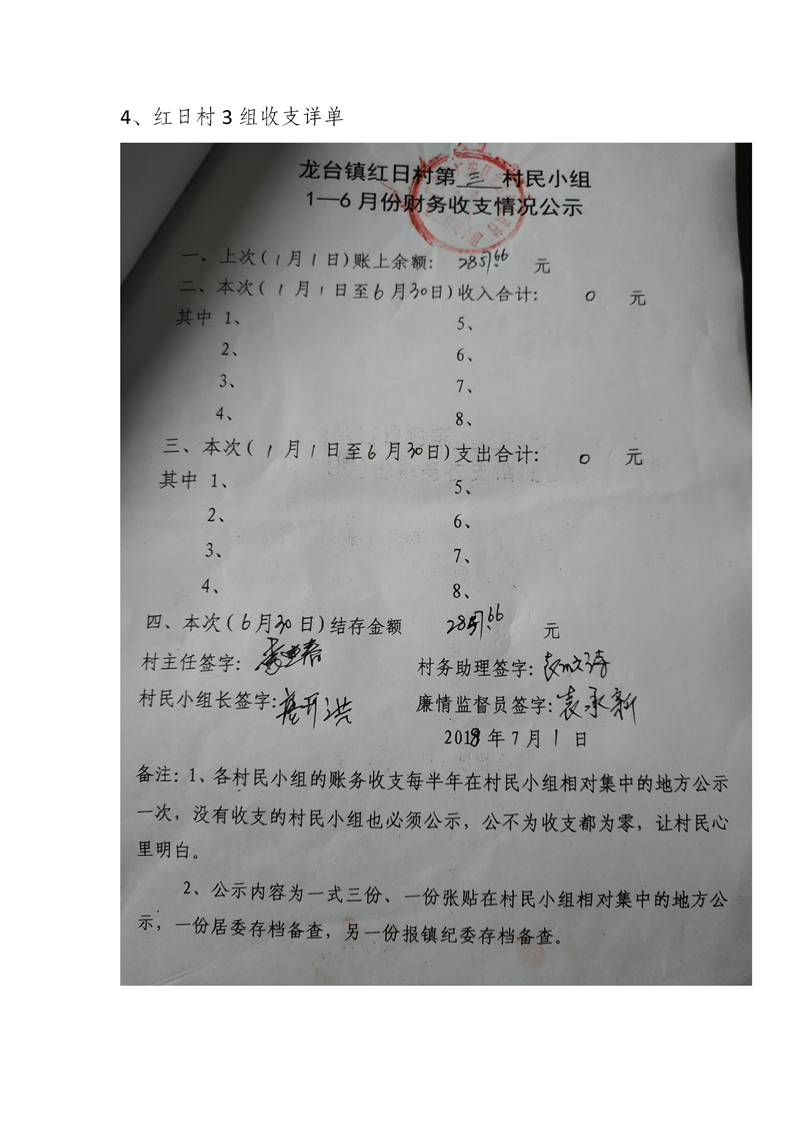 4、红日村3组收支详单
龙台镇红日村第 三 村民小组
1—6月份财务收支情况公示
一、上次(1月1日)账上余额: 2851.66 元
二、本次(1月1日至6月30日)收入合计: 0 元
其中 1、 5、
2、 6、
3、 7、
4、 8、
三、本次(1月1日至6月30日)支出合计: 0 元
其中 1、 5、
2、 6、
3、 7、
4、 8、
四、本次(6月30日)结存金额 2851.66 元
村主任签字: 村务助理签字:
村民小组长签字: 廉情监督员签字:袁承新
2018年7月1日
备注:1、各村民小组的账务收支每半年在村民小组相对集中的地方公示
一次，没有收支的村民小组也必须公示，公不为收支都为零，让村民心
里明白。
2、公示内容为一式三份、一份张贴在村民小组相对集中的地方公
示，一份居委存档备查，另一份报镇纪委存档备查。